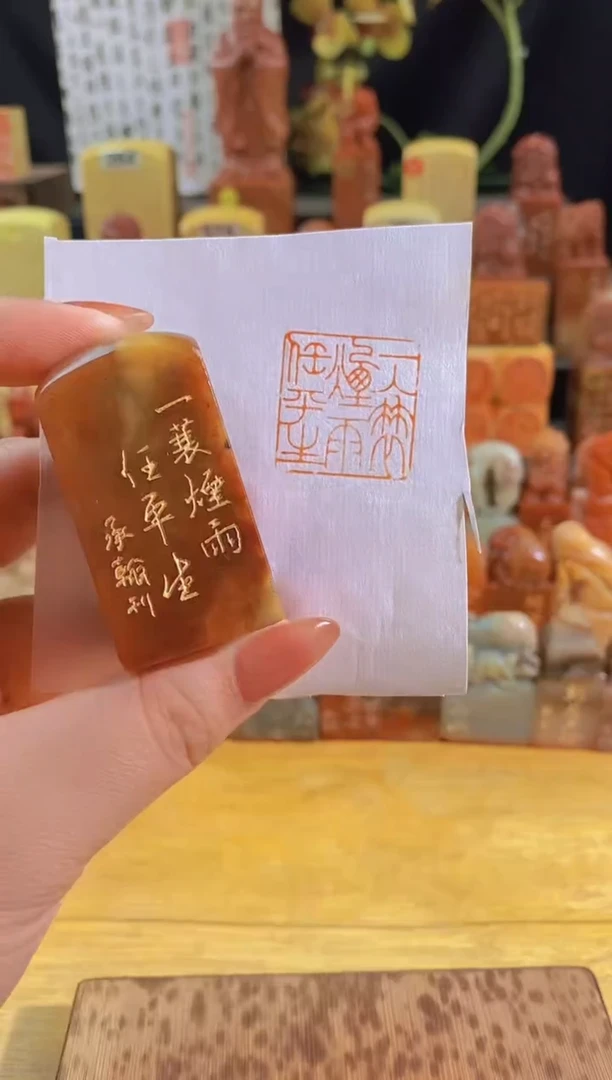 一蓑煙雨
任平生
承翰刊
一蓑
煙雨
任平生